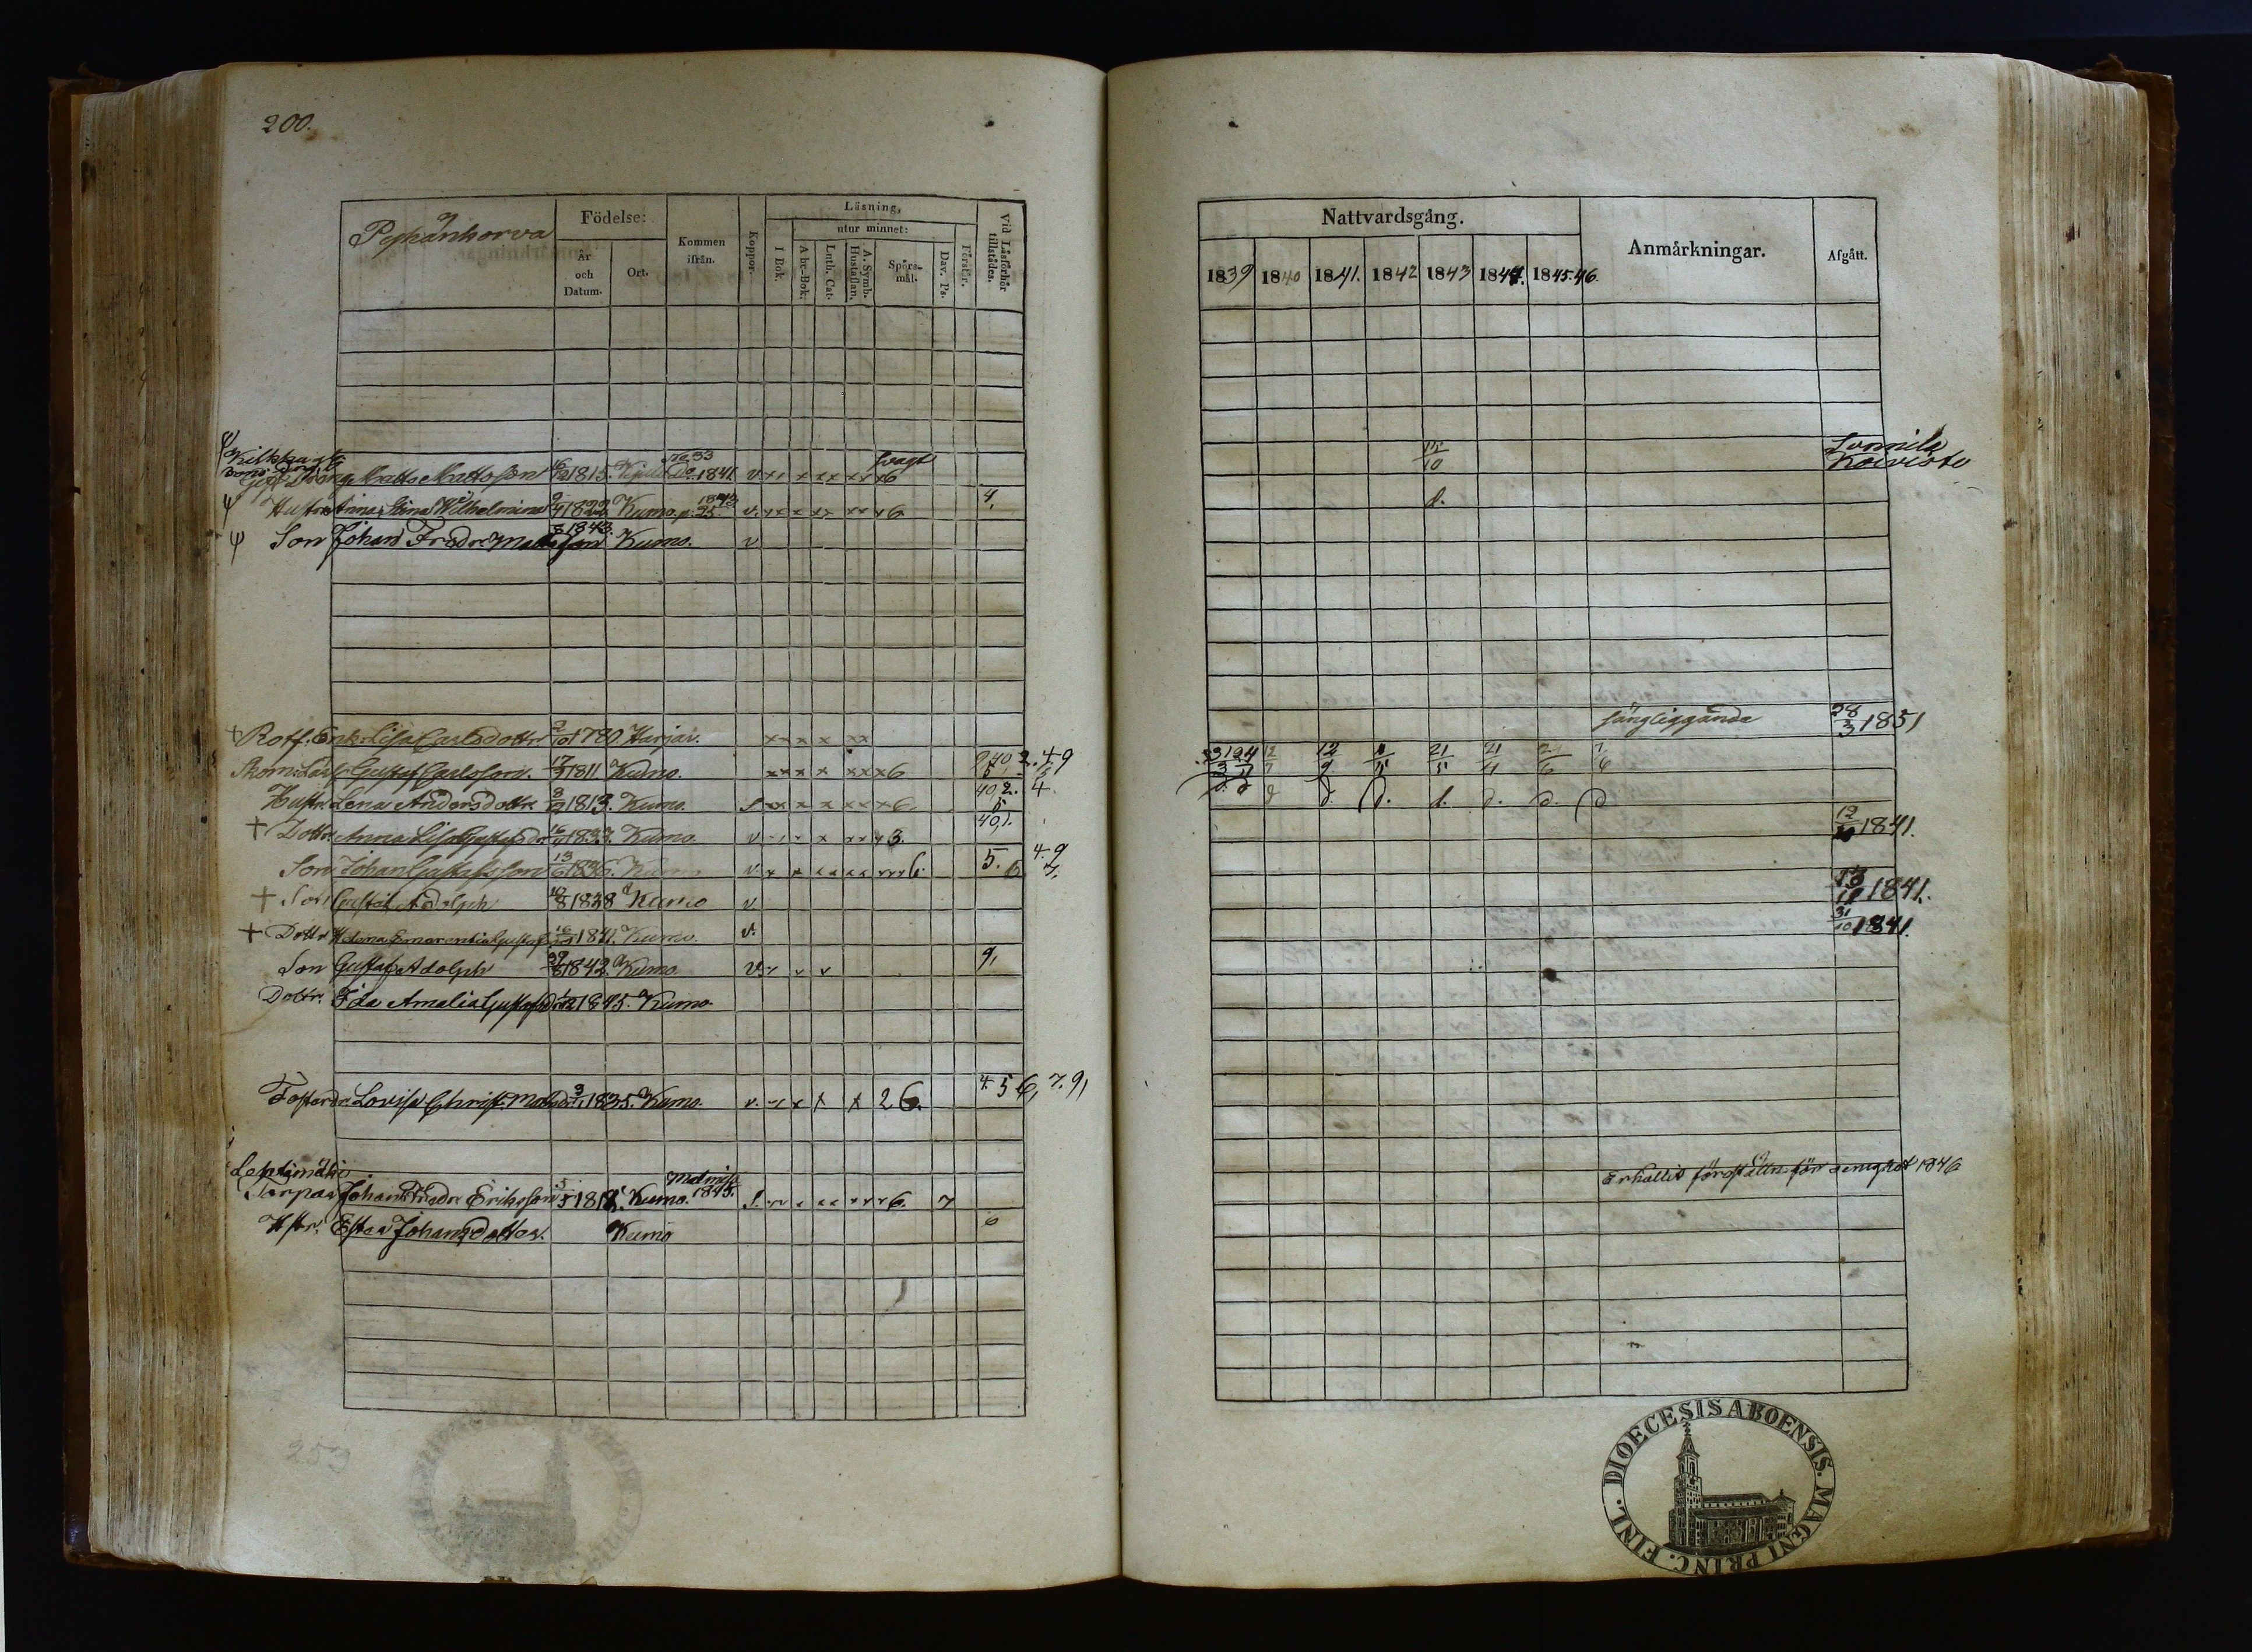 200.
Pyhänkorva
Födelse:
År och Datum.
Ort.
Kommen ifrån.
Koppor.
Läsning,
I Bok.
utur minnet:
A bc-Bok.
Luth. Cat.
A. Symb. Hustaflan.
Spörs-mål.
Dav. Ps.
Förstår.
Vid Läsförhör tillstädes.
Matts Mattsson 16/12 1815. 1841 v 6 svagt
Hustr Anna Stina Wilhelmina 1822 Kumo. p. 25. 1843 v. 6 4.
Son Johan Fredr Mattsson 1843. Kumo. v
Enk. Lisa Carlsdottr 2/10 1780. Harjav.
Gustaf Carlsson. 17/3 1811 Kumo. 6
Hustr. Lena Andersdottr 1813. Kumo. 6. 40 2. 4.
+ Dottr. Anna Lisa Gustafsdr 1833. Kumo. v 3. 40,1.
Son Johan Gustafsson 13/6 1836. Kumo v. 6. 5. 6 4. 9
+ Son Gustaf Adolph 1838 Kumo v
+ Dottr Helena Emerentia Gustafsdr 1841. Kumo. v.
Son Gustaf Adolph 1843 Kumo. 9,
Dottr. Ida Amalia Gustafsdr 1845. Kumo.
Fosterdr. Lovisa Christ. Matsdr 1835. Kumo. v. 2 6. 4. 5 6, 7. 9,
Lehtimäki
Torpar Johan Fredr Eriksson 1818. Kumo. 1845. 6. 7
Hstr. Ester Johansdotter. Kumo 6
253
Nattvardsgång.
1839 1840 1841. 1842 1843 1844. 1845.46.
Anmärkningar.
Afgått.
15/10
Koivisto
d.
sängliggande 28/3 1851
12/7 12/9 21/5 21/4
d d. d. d. d. d. d
12/10 1841.
1841.
31/10 1841.
Erhållit 1846
DIOECESIS ABOENSIS. MAGNI PRINC. FINL.